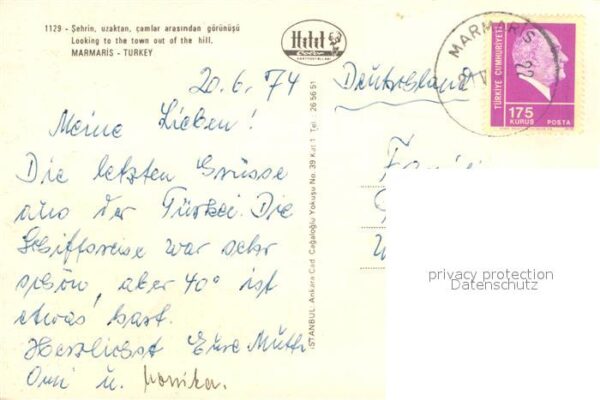 1129 - Şehrin, uzaktan, çamlar arasından görünüşü
Looking to the town out of the hill.
MARMARIS - TURKEY
Hitit
20.6.74
Deutschland
Meine Lieben!
Die letzten Grüsse
aus der Türkei. Die
Schiffsreise war sehr
schön, aber 40° ist
etwas hart.
Herzlichst Eure Mutti
Omi u. Monika.
İSTANBUL Ankara Cad. Cağaloğlu Yokuşu No. 39 Kat 1 Tel : 26 56 51
MARMARİS
22
TÜRKİYE CUMHURİYETİ
175
KURUS POSTA
privacy protection
Datenschutz